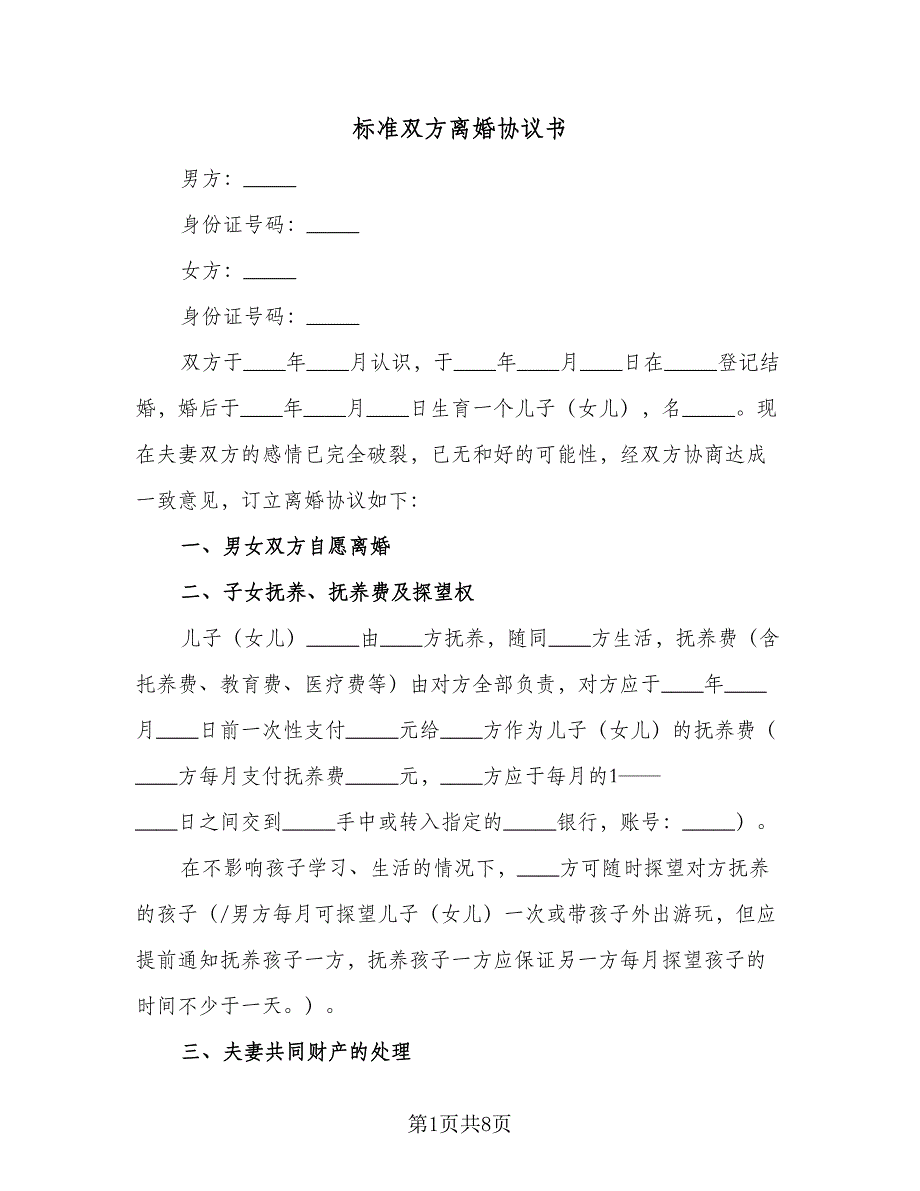 标准双方离婚协议书
男方：_____
身份证号码：_____
女方：_____
身份证号码：_____
双方于____年____月认识，于____年____月____日在_____登记结
婚，婚后于____年____月____日生育一个儿子（女儿），名_____。现
在夫妻双方的感情已完全破裂，已无和好的可能性，经双方协商达成
一致意见，订立离婚协议如下：
一、男女双方自愿离婚
二、子女抚养、抚养费及探望权
儿子（女儿）_____由____方抚养，随同____方生活，抚养费（含
托养费、教育费、医疗费等）由对方全部负责，对方应于____年____
月____日前一次性支付_____元给____方作为儿子（女儿）的抚养费（
____方每月支付抚养费_____元，____方应于每月的1——
____日之间交到_____手中或转入指定的_____银行，账号：_____）。
在不影响孩子学习、生活的情况下，____方可随时探望对方抚养
的孩子（/男方每月可探望儿子（女儿）一次或带孩子外出游玩，但应
提前通知抚养孩子一方，抚养孩子一方应保证另一方每月探望孩子的
时间不少于一天。）。
三、夫妻共同财产的处理
第1页共8页